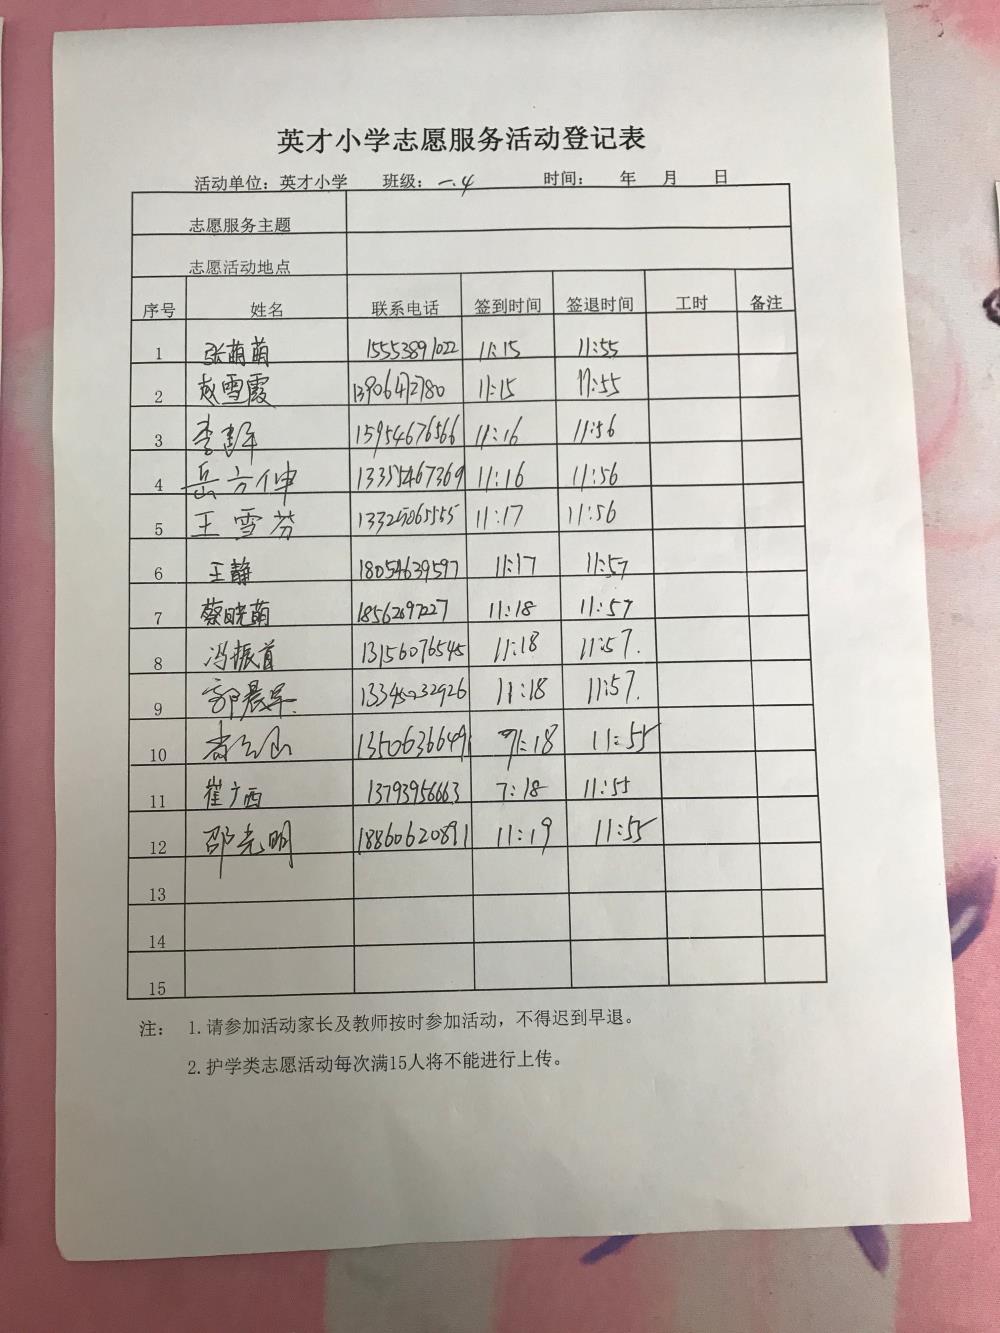 英才小学志愿服务活动登记表
活动单位：英才小学 班级：一.4 时间： 年 月 日
志愿服务主题
志愿活动地点
序号 姓名 联系电话 签到时间 签退时间 工时 备注
1 张萌萌 15553891022 11:15 11:55
2 赵雪霞 13906472780 11:15 11:55
3 李 15954676566 11:16 11:56
4 岳方伸 13355467369 11:16 11:56
5 王雪芬 13325065555 11:17 11:56
6 王静 18054639597 11:17 11:57
7 蔡晓萌 18562097227 11:18 11:57
8 冯振首 13156076545 11:18 11:57.
9 郭晨军. 13345232926 11:18 11:57.
10 13506366491 11:18 11:55
11 崔广西 13793956663 7:18 11:55
12 邵光明 18860620891 11:19 11:55
13
14
15
注： 1.请参加活动家长及教师按时参加活动，不得迟到早退。
2.护学类志愿活动每次满15人将不能进行上传。